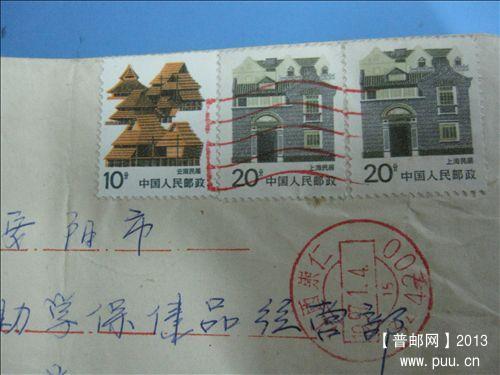 云南民居
10分 中国人民邮政
上海民居
20分 中国人民邮政
上海民居
20分 中国人民邮政
阳市
助学保健品经营部
崇仁
【普邮网】2013
www.puu.cn